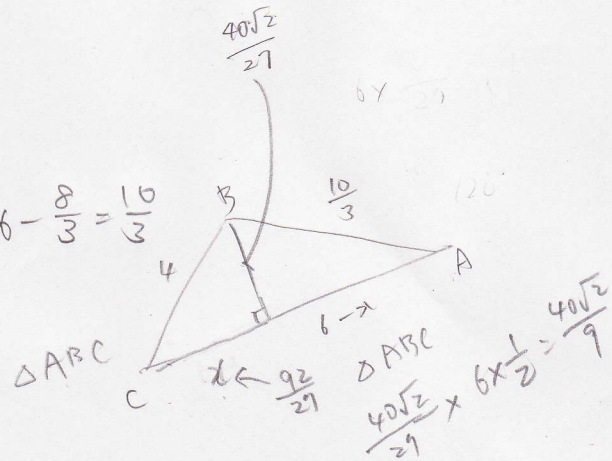 40√2/27
6 - 8/3 = 10/3
B
10/3
4
A
6-x
△ABC
x ← 92/27
△ABC
C
40√2/27 × 6 × 1/2 = 40√2/9